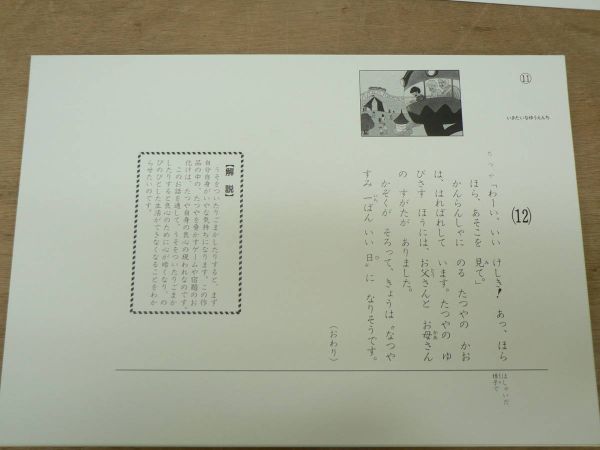 ⑪
いきたいなゆうえんち
(12)
たつや「わーい、いい けしき! あっ、ほら
ほら、あそこを 見て。」
かんらんしゃに のる たつやの かお
は、はればれして います。たつやの ゆ
びさす ほうには、お父さんと お母さん
の すがたが ありました。
かぞくが そろって、きょうは〝なつや
すみ 一ばん いい 日〟に なりそうです。
(おわり)
はしゃいだ
様子で
【解説】
うそをついたりごまかしたりすると、まず
自分自身がいやな気持ちになります。この作
品の中の、たつやを脅かすゲームや宿題のお
化けは、たつや自身の良心の現われなのです。
このお話を通して、うそをついたりごまか
したりすると良心のために心が暗くなり、の
びのびとした生活ができなくなることをわか
らせたいのです。